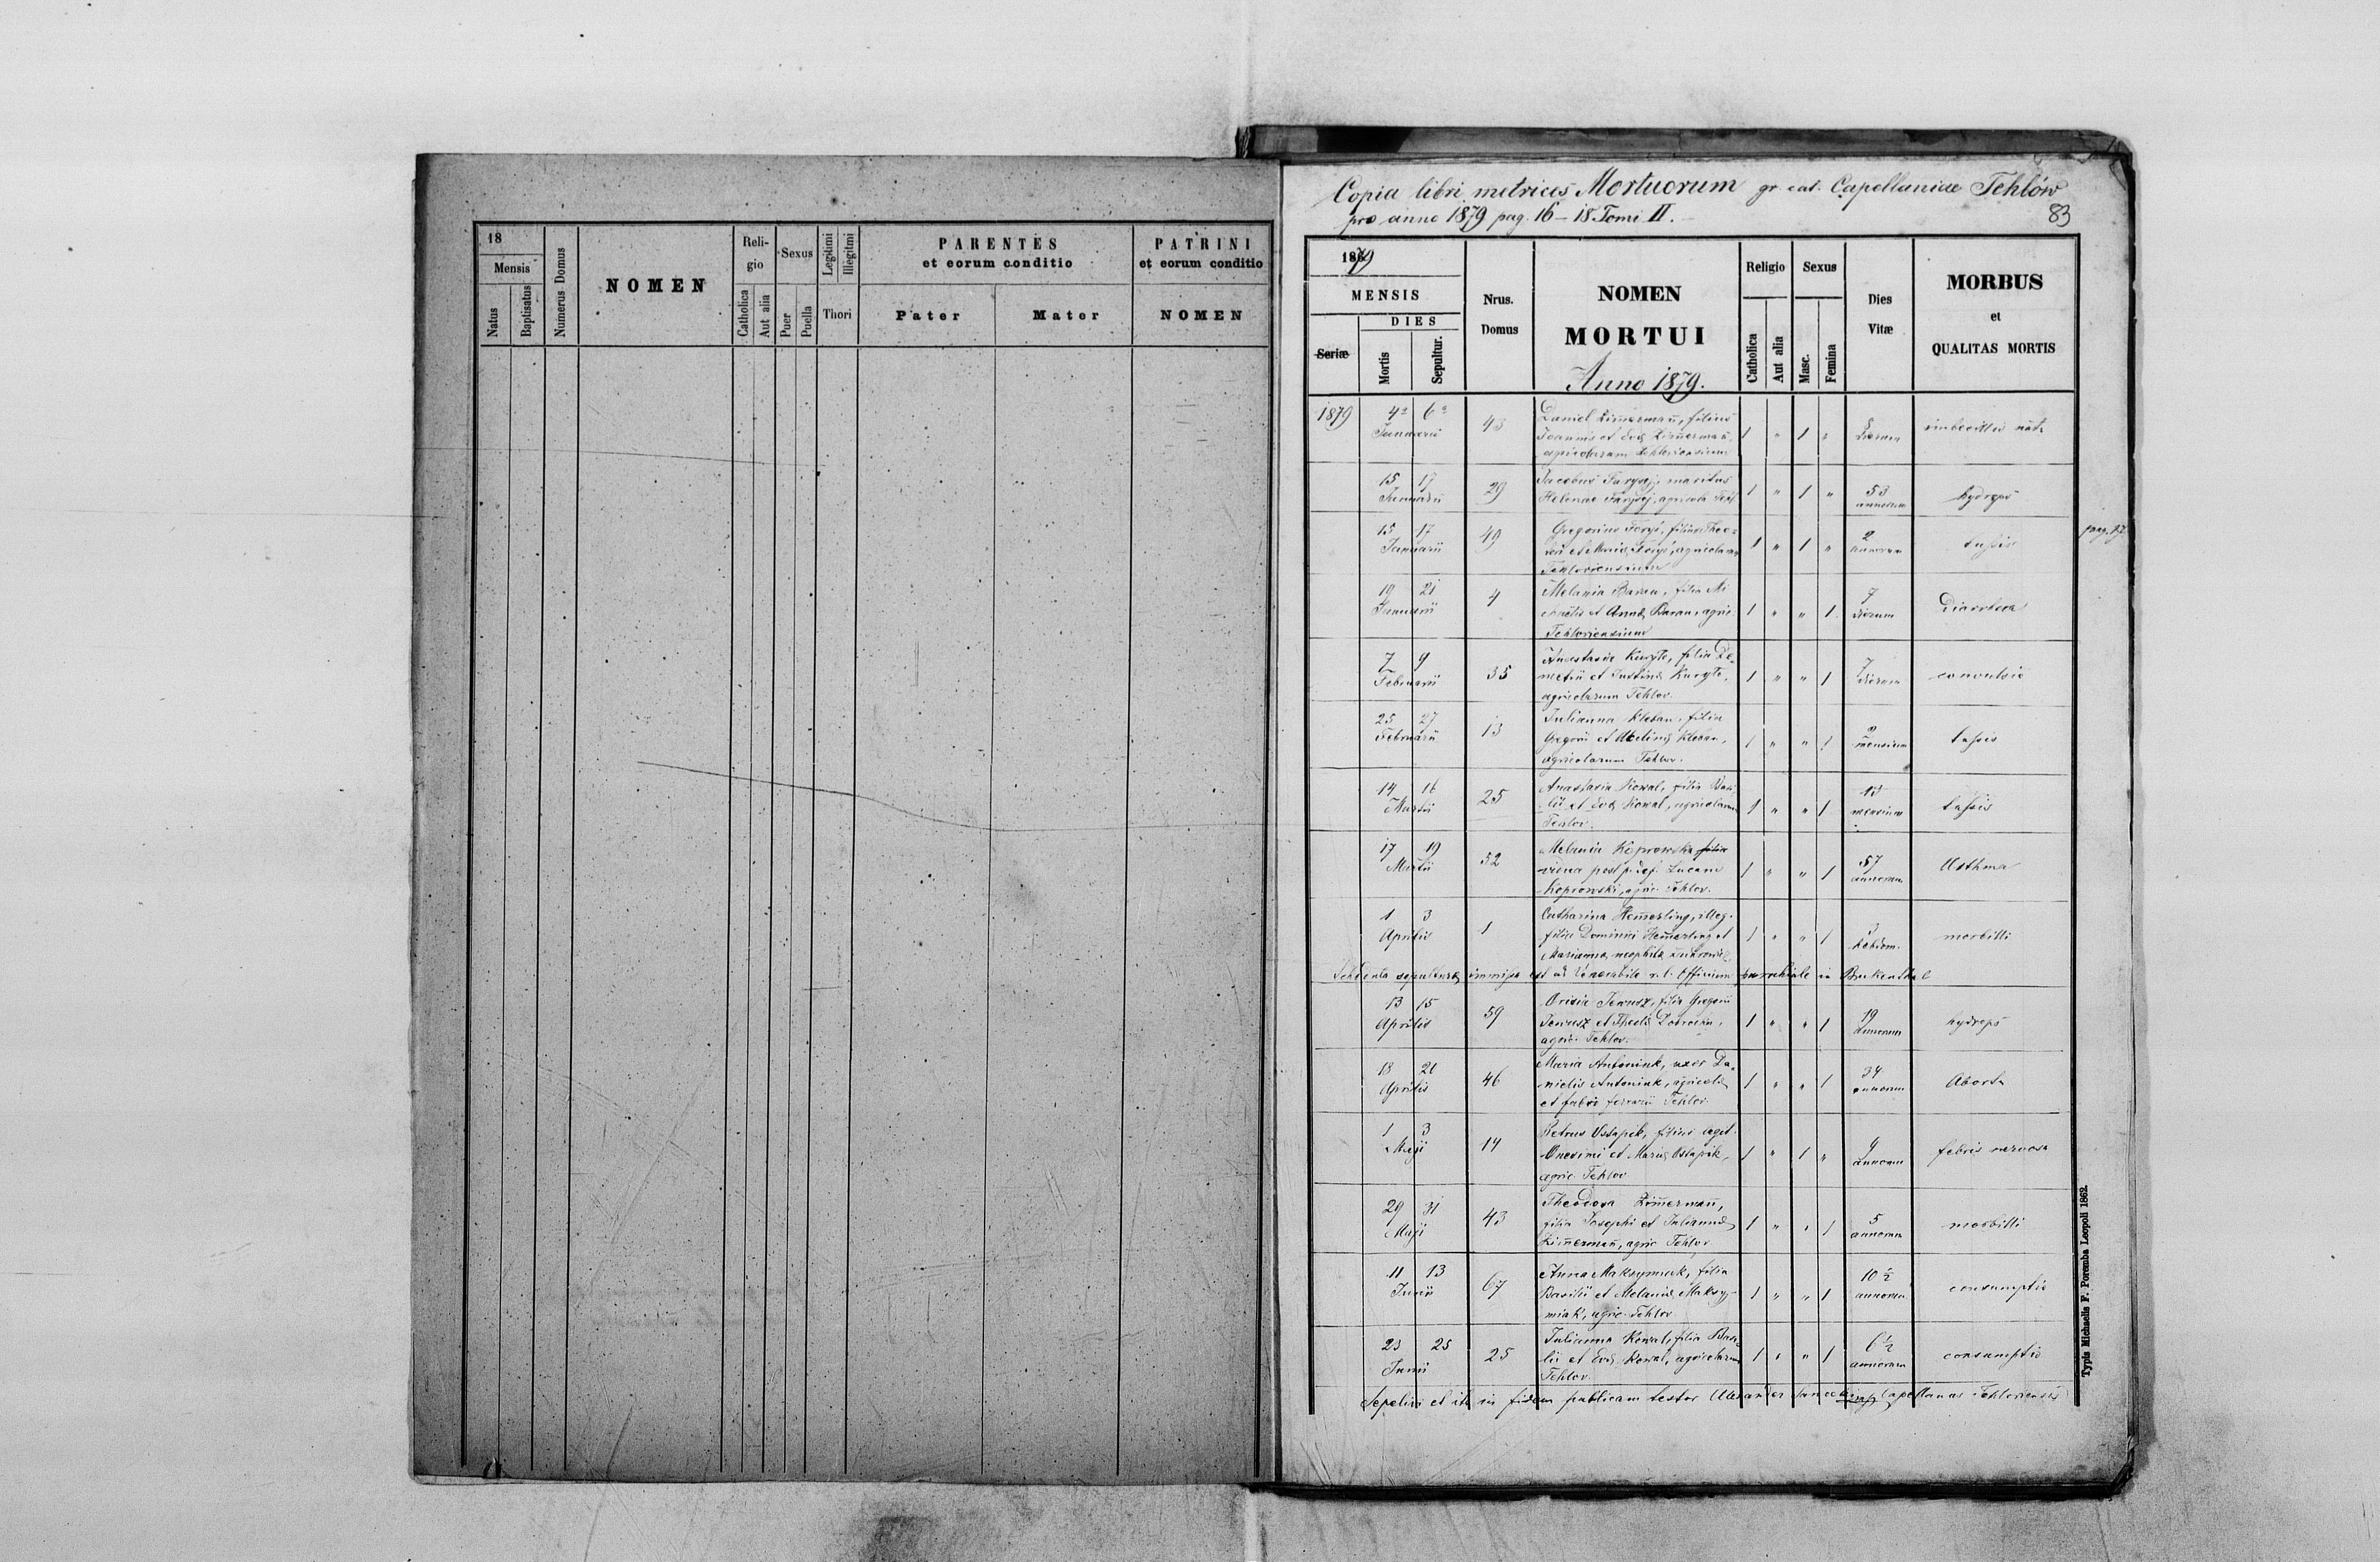 18
Mensis
Natus
Baptisatus
Numerus Domus
NOMEN
Reli-
gio
Catholica
Aut alia
Sexus
Puer
Puella
Legitimi
Illegitmi
Thori
PARENTES
et eorum conditio
Pater
Mater
PATRINI
et eorum conditio
NOMEN
Copia libri metrices Mortuorum gr. cat. Capellaniae Tehlów
pro anno 1879 pag. 16 - 18 Tomi II.
83
1879
MENSIS
DIES
Seriæ
Mortis
Sepultur.
Nrus.
Domus
NOMEN
MORTUI
Anno 1879.
Religio
Catholica
Aut alia
Sexus
Masc.
Femina
Dies
Vitæ
MORBUS
et
QUALITAS MORTIS
1879
4a 6a
Januarii
43
Daniel Zim̄erman̄, filius
Joannis et Evae Zim̄erman̄,
agricolarum Tehloviensium
1 " 1 "
dierum
15 17
Januarii
29
Jacobus Farysej, maritus
Helenae Farysej, agricola Tehl
1 " 1 "
53
annorum
hydrops
15 17
Januarii
49
Gregorius Forys, filius Theo-
Forys, agricolarum
Tehloviensium
1 " 1 "
2
annorum
tussis
pag. 17
19 21
Januarii
4
Melania Baran, filia Mi
chaelis et Annae Baran, agric.
Tehloviensium
1 " " 1
7
dierum
Diarrhoea
7 9
Februarii
35
Anastasia Kuryło, filia De-
metrii et Justinae Kuryło,
agricolarum Tehlov.
1 " " 1
7
dierum
convulsio
25 27
Februarii
13
Julianna Kleban, filia
Gregorii et Kleban,
agricolarum Tehlov.
1 " " 1
mensium
tussis
14 16
Martii
25
Anastasia Kowal, filia Basi-
lii et Evae Kowal, agricolarum
Tehlov.
1 " " 1
mensium
tussis
17 19
Martii
52
Melania Koprowska filia
vidua post p. def. Lucam
Koprowski, agric. Tehlov.
1 " " 1
57
annorum
Asthma
1 3
Aprilis
1
Catharina Hem̄erling, illeg.
filia Dominici Hem̄erling et
Marianna, neophita
1 " " 1
hebdom.
morbilli
Schedula sepulturae immissa est ad Venerabile r. l. Officium parochiale in Bruckenthal
13 15
Aprilis
59
Jarusz, filia Gregorii
Jarusz et Theclae
agric. Tehlov.
1 " " 1
19
annorum
hydrops
18 20
Aprilis
46
Maria Antoniuk, uxor Da-
nielis Antoniuk, agricolae
et fabri ferrarii Tehlov.
1 " " 1
34
annorum
Aborta
1 3
Maji
14
Petrus Ostapik, filius legit.
Onesimi et Mariae Ostapik,
agric. Tehlov
1 " 1 "
9
annorum
febris nervosa
29 31
Maji
43
Theodora Zim̄erman̄,
filia Josephi et Juliannae
Zim̄erman̄, agric. Tehlov
1 " " 1
5
annorum
morbilli
11 13
Junii
67
Anna Maksymiak, filia
Basilii et Melaniae Maksy-
miak, agric. Tehlov
1 " " 1
10 ½
annorum
consumptio
23 25
Junii
25
Julianna Kowal, filia Basi-
lii et Evae Kowal, agricolarum
Tehlov.
1 " " 1
6 ½
annorum
consumptio
Sepelivi et ita in fidem publicam testor Alexander Capellanus Tehloviensis
Typis Michaelis F. Poremba Leopoli 1862.